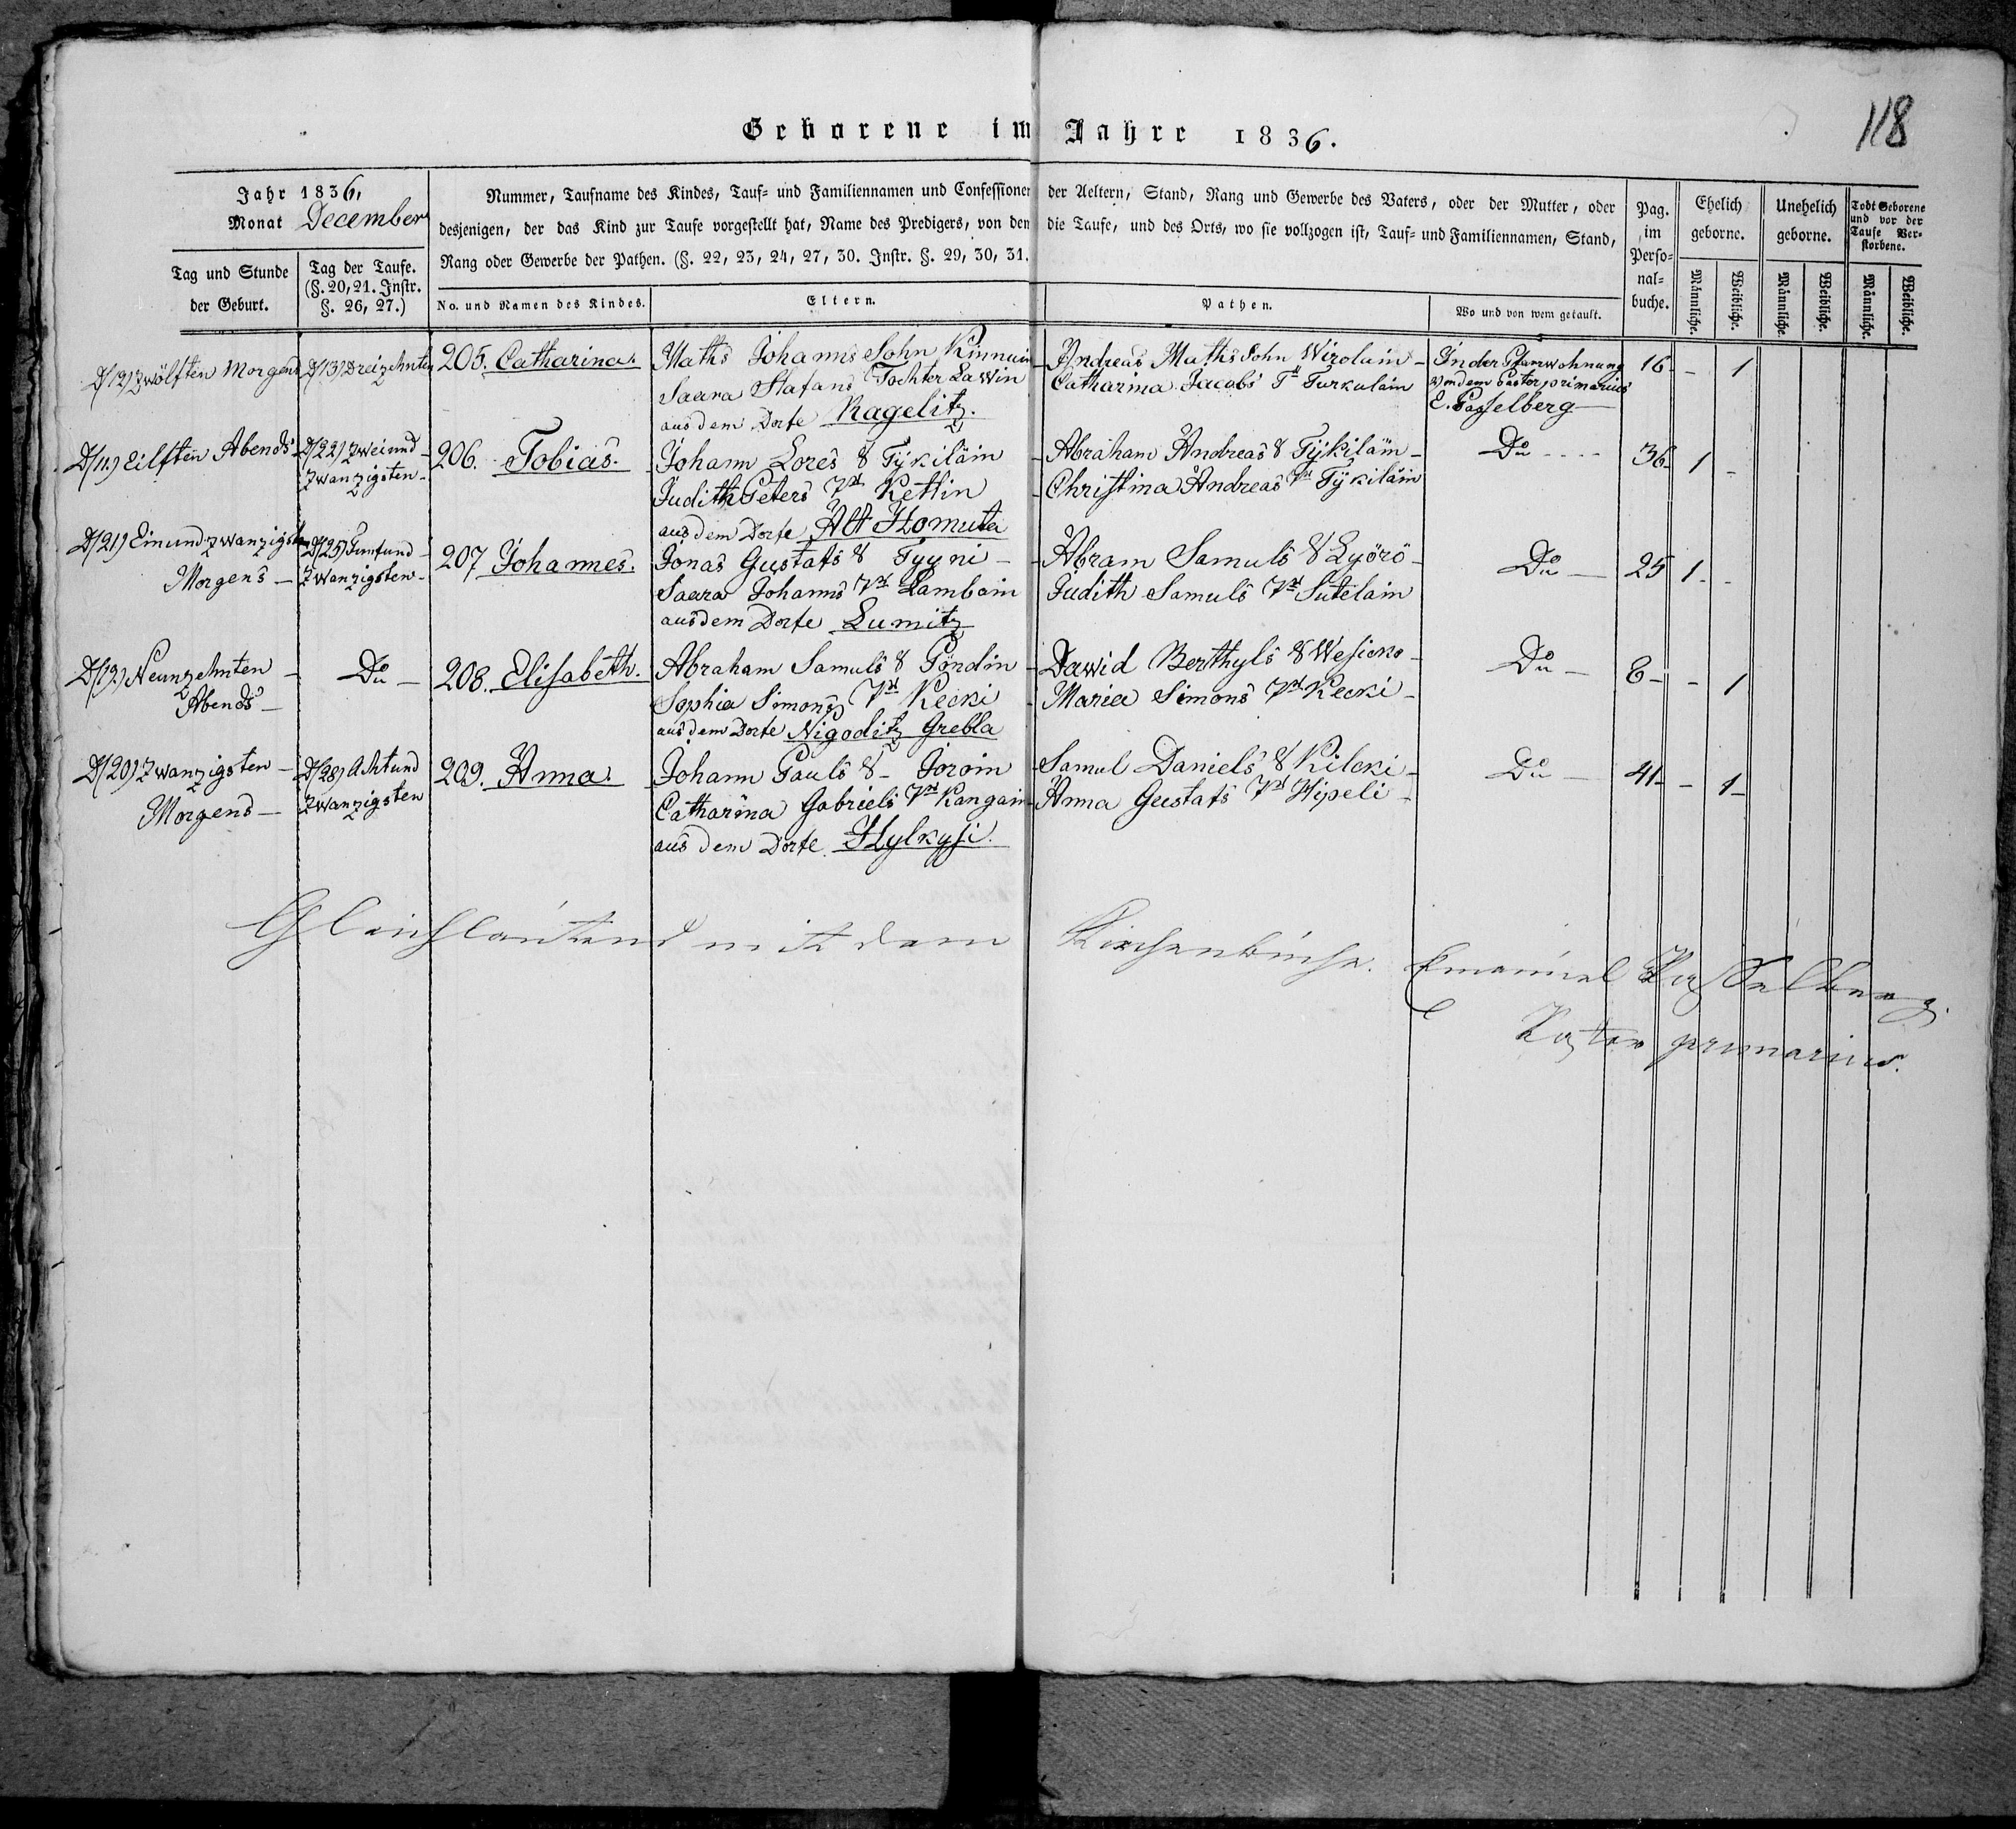 118
Geborene im Jahre 1836.
Jahr 1836,
Monat December
Tag und Stunde
der Geburt.
Tag der Taufe.
(§. 20, 21. Instr.
§. 26, 27.)
Nummer, Taufname des Kindes, Tauf- und Familiennamen und Confessionen der Aeltern, Stand, Rang und Gewerbe des Vaters, oder der Mutter, oder
desjenigen, der das Kind zur Taufe vorgestellt hat, Name des Predigers, von dem die Taufe, und des Orts, wo sie vollzogen ist, Tauf- und Familiennamen, Stand,
Rang oder Gewerbe der Pathen. (§. 22, 23, 24, 27, 30. Instr. §. 29, 30, 31.
No. und Namen des Kindes.
Eltern.
Pathen.
Wo und von wem getauft.
Pag.
im
Perso-
nal-
buche.
Ehelich
geborne.
Unehelich
geborne.
Todt Geborene
und vor der
Taufe Ver-
storbene.
Männliche.
Weibliche.
Männliche.
Weibliche.
Männliche.
Weibliche.
D/12) Zwölften Morgens
D/13) Dreizehnten
205. Catharina.
Maths Johanns Sohn Kinnuin
Saara Stafans Tochter Lawin
aus dem Dorfe Kagelitz.
Andreas Maths Sohn Wirolain -
Catharina Jacobs Tr Turkulain
In der Pfarrwohnung
von dem Pastor primarius
E. Passelberg -
16 - - 1
D/11.) Eilften Abends
D/22) Zweiund-
zwanzigsten -
206. Tobias.
Johann Lores S Tÿkiläin
Judith Peters Tr Kettin
aus dem Dorfe Alt Homuta
- Abraham Andreas S Tÿkiläin -
- Christina Andreas Tr Tÿkiläin
Do - - - -
36 - 1 -
D/21) Einundzwanzigsten
Morgens -
D/25) Funfund-
zwanzigsten -
207 Johannes.
Jonas Gustafs S Tyyni -
Saara Johanns Tr Lamboin
aus dem Dorfe Lumitz
- Abram Samuls S Lyörö -
Judith Samuls Tr Sutelain
Do -
25 1 - -
D/19.) Neunzehnten -
Abends -
Do -
208. Elisabeth.
Abraham Samuls S Pöndin
Sophia Simons Tr Kecki
aus dem Dorfe Nigoditz Grebla
- Dawid Berthyls S Wesicko -
- Maria Simons Tr Kecki -
Do -
6 - - 1
D/20) Zwanzigsten -
Morgens -
D/28) Achtund
zwanzigsten
209. Anna.
Johann Pauls S - Poroin
Catharina Gabriels Tr Kangain
aus dem Dorfe Hylkysi.
- Samul Daniels S Kilcki -
- Anna Gustafs Tr Hÿpeli -
Do -
41 - - 1 -
Gleichlautend mit dem Kirchenbuche. Emanuel Passelberg.
Pastor primarius.